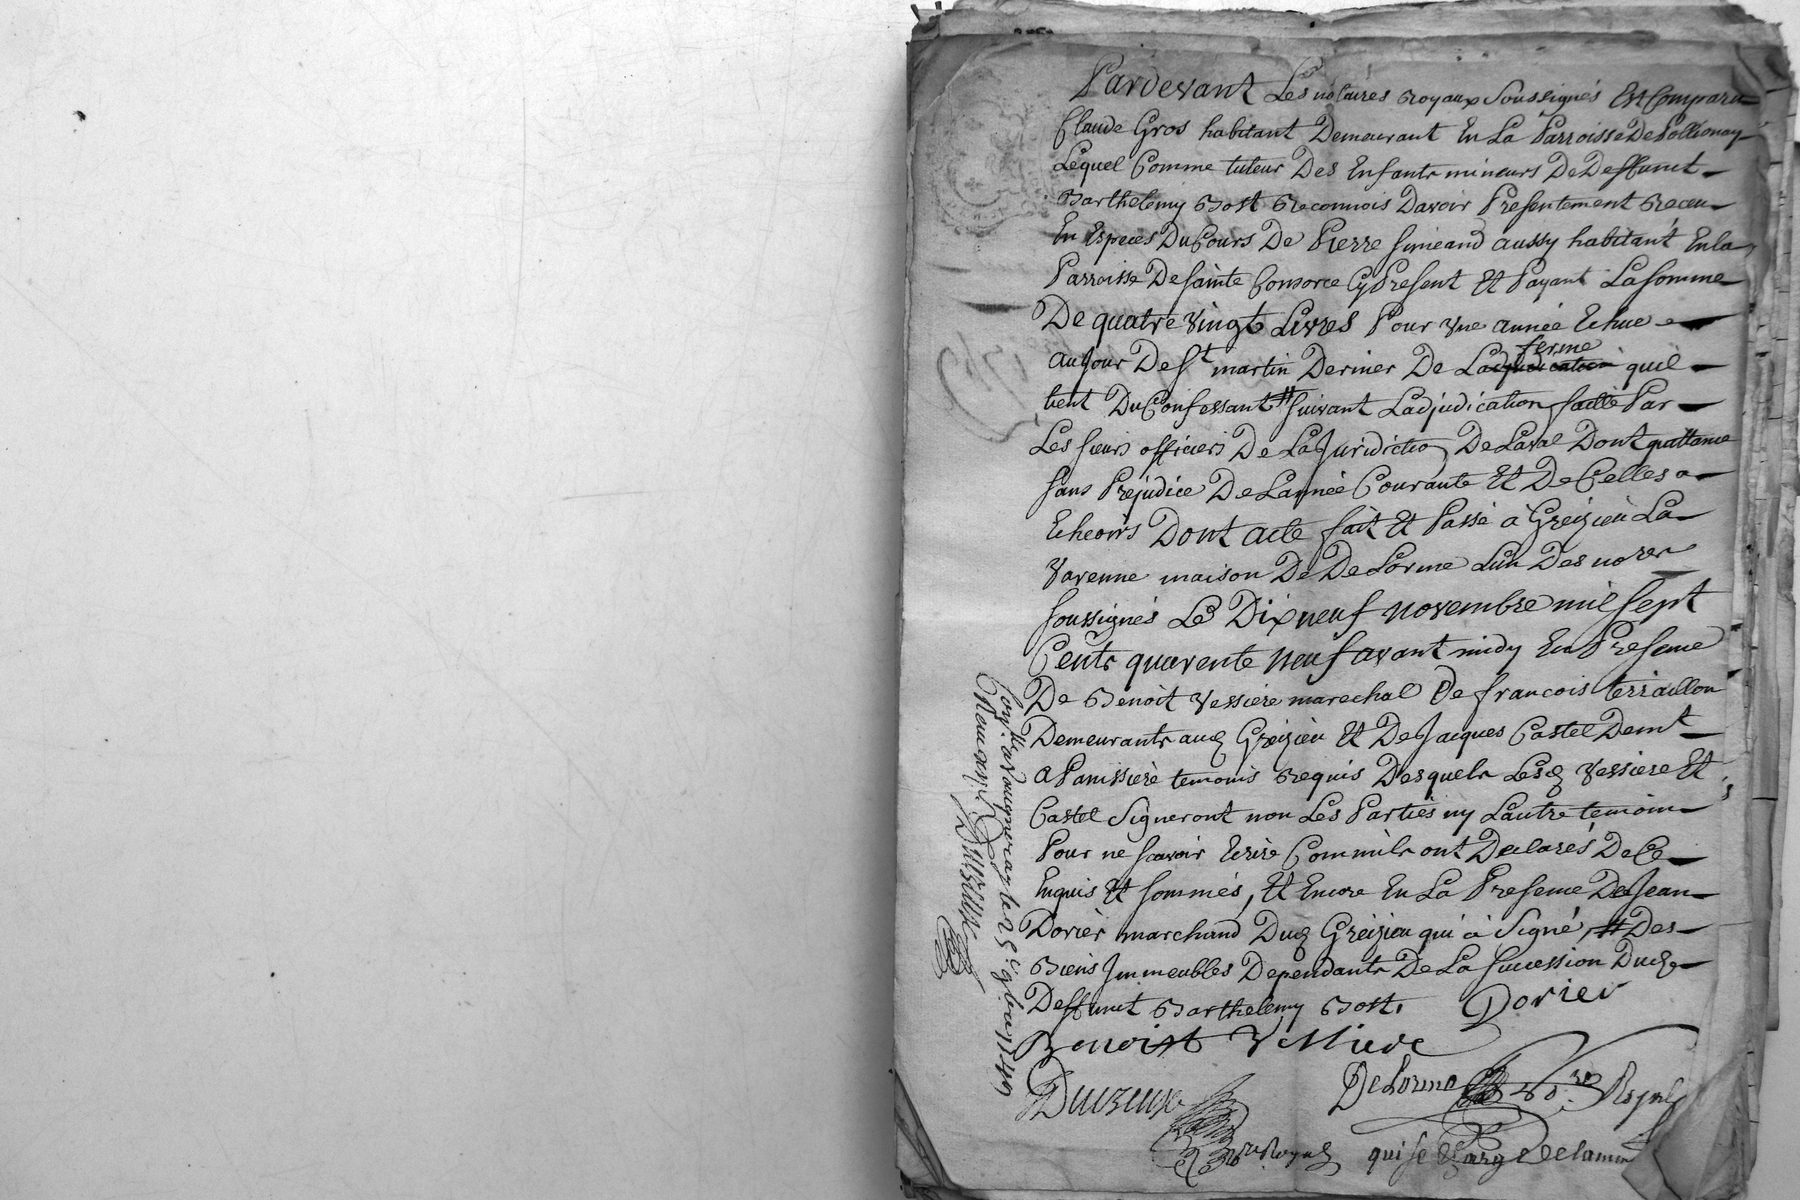 Pardevant Les notaires Royaux Soussignés Est Comparu
Claude Gros habitant Demeurant En La Parroisse De Pollionay
Lequel Comme tuteur Des Enfants mineurs De Deffunct
Barthelemy Bost Reconnois Davoir Presentement Receu
En Especes Du Cours De Pierre Simeand aussy habitant En la
Parroisse De Sainte Consorce Cy Present Et Payant La Somme
De quatre Vingt Livres Pour Vne année Echue
au Jour De St martin Dernier De La ferme quil
tient Du Confessant # Suivant Ladjudication faitte Par
Les Sieurs officiers De La Juridiction De Laval Dont quittance
Sans Prejudice De Lannée Courante Et De Celles a
Echeoirs Dont acte fait Et Passé a Greizieu La
Varenne maison De DeLorme Lun Des nores
Soussignés Le Dix neuf novembre mil Sept
Cents quarente neuf avant midy En Presence
De Benoit Vessiere marechal De francois terraillon
Demeurants aud Greizieu Et De Jacques Castel Demt
a Panissiere temoins Requis Desquels Lesd Vessiere Et
Castel Signeront non Les Parties ny Lautre temoin
Pour ne Scavoir Ecrire Commils ont Declarés De Ce
Enquis Et Sommés, Et Encore En La Presence De Jean
Dorier marchand Dud Greizieu qui à Signé, # Des
Biens Immeubles Dependants De La Succession Dud
Deffunct Barthelemy Bost. Dorier
Benoist Vessiere
DeLorme Nore Royal
qui se charge De la min
Nore Royal
Conlle a Vaugneray le 25e 9bre 1749